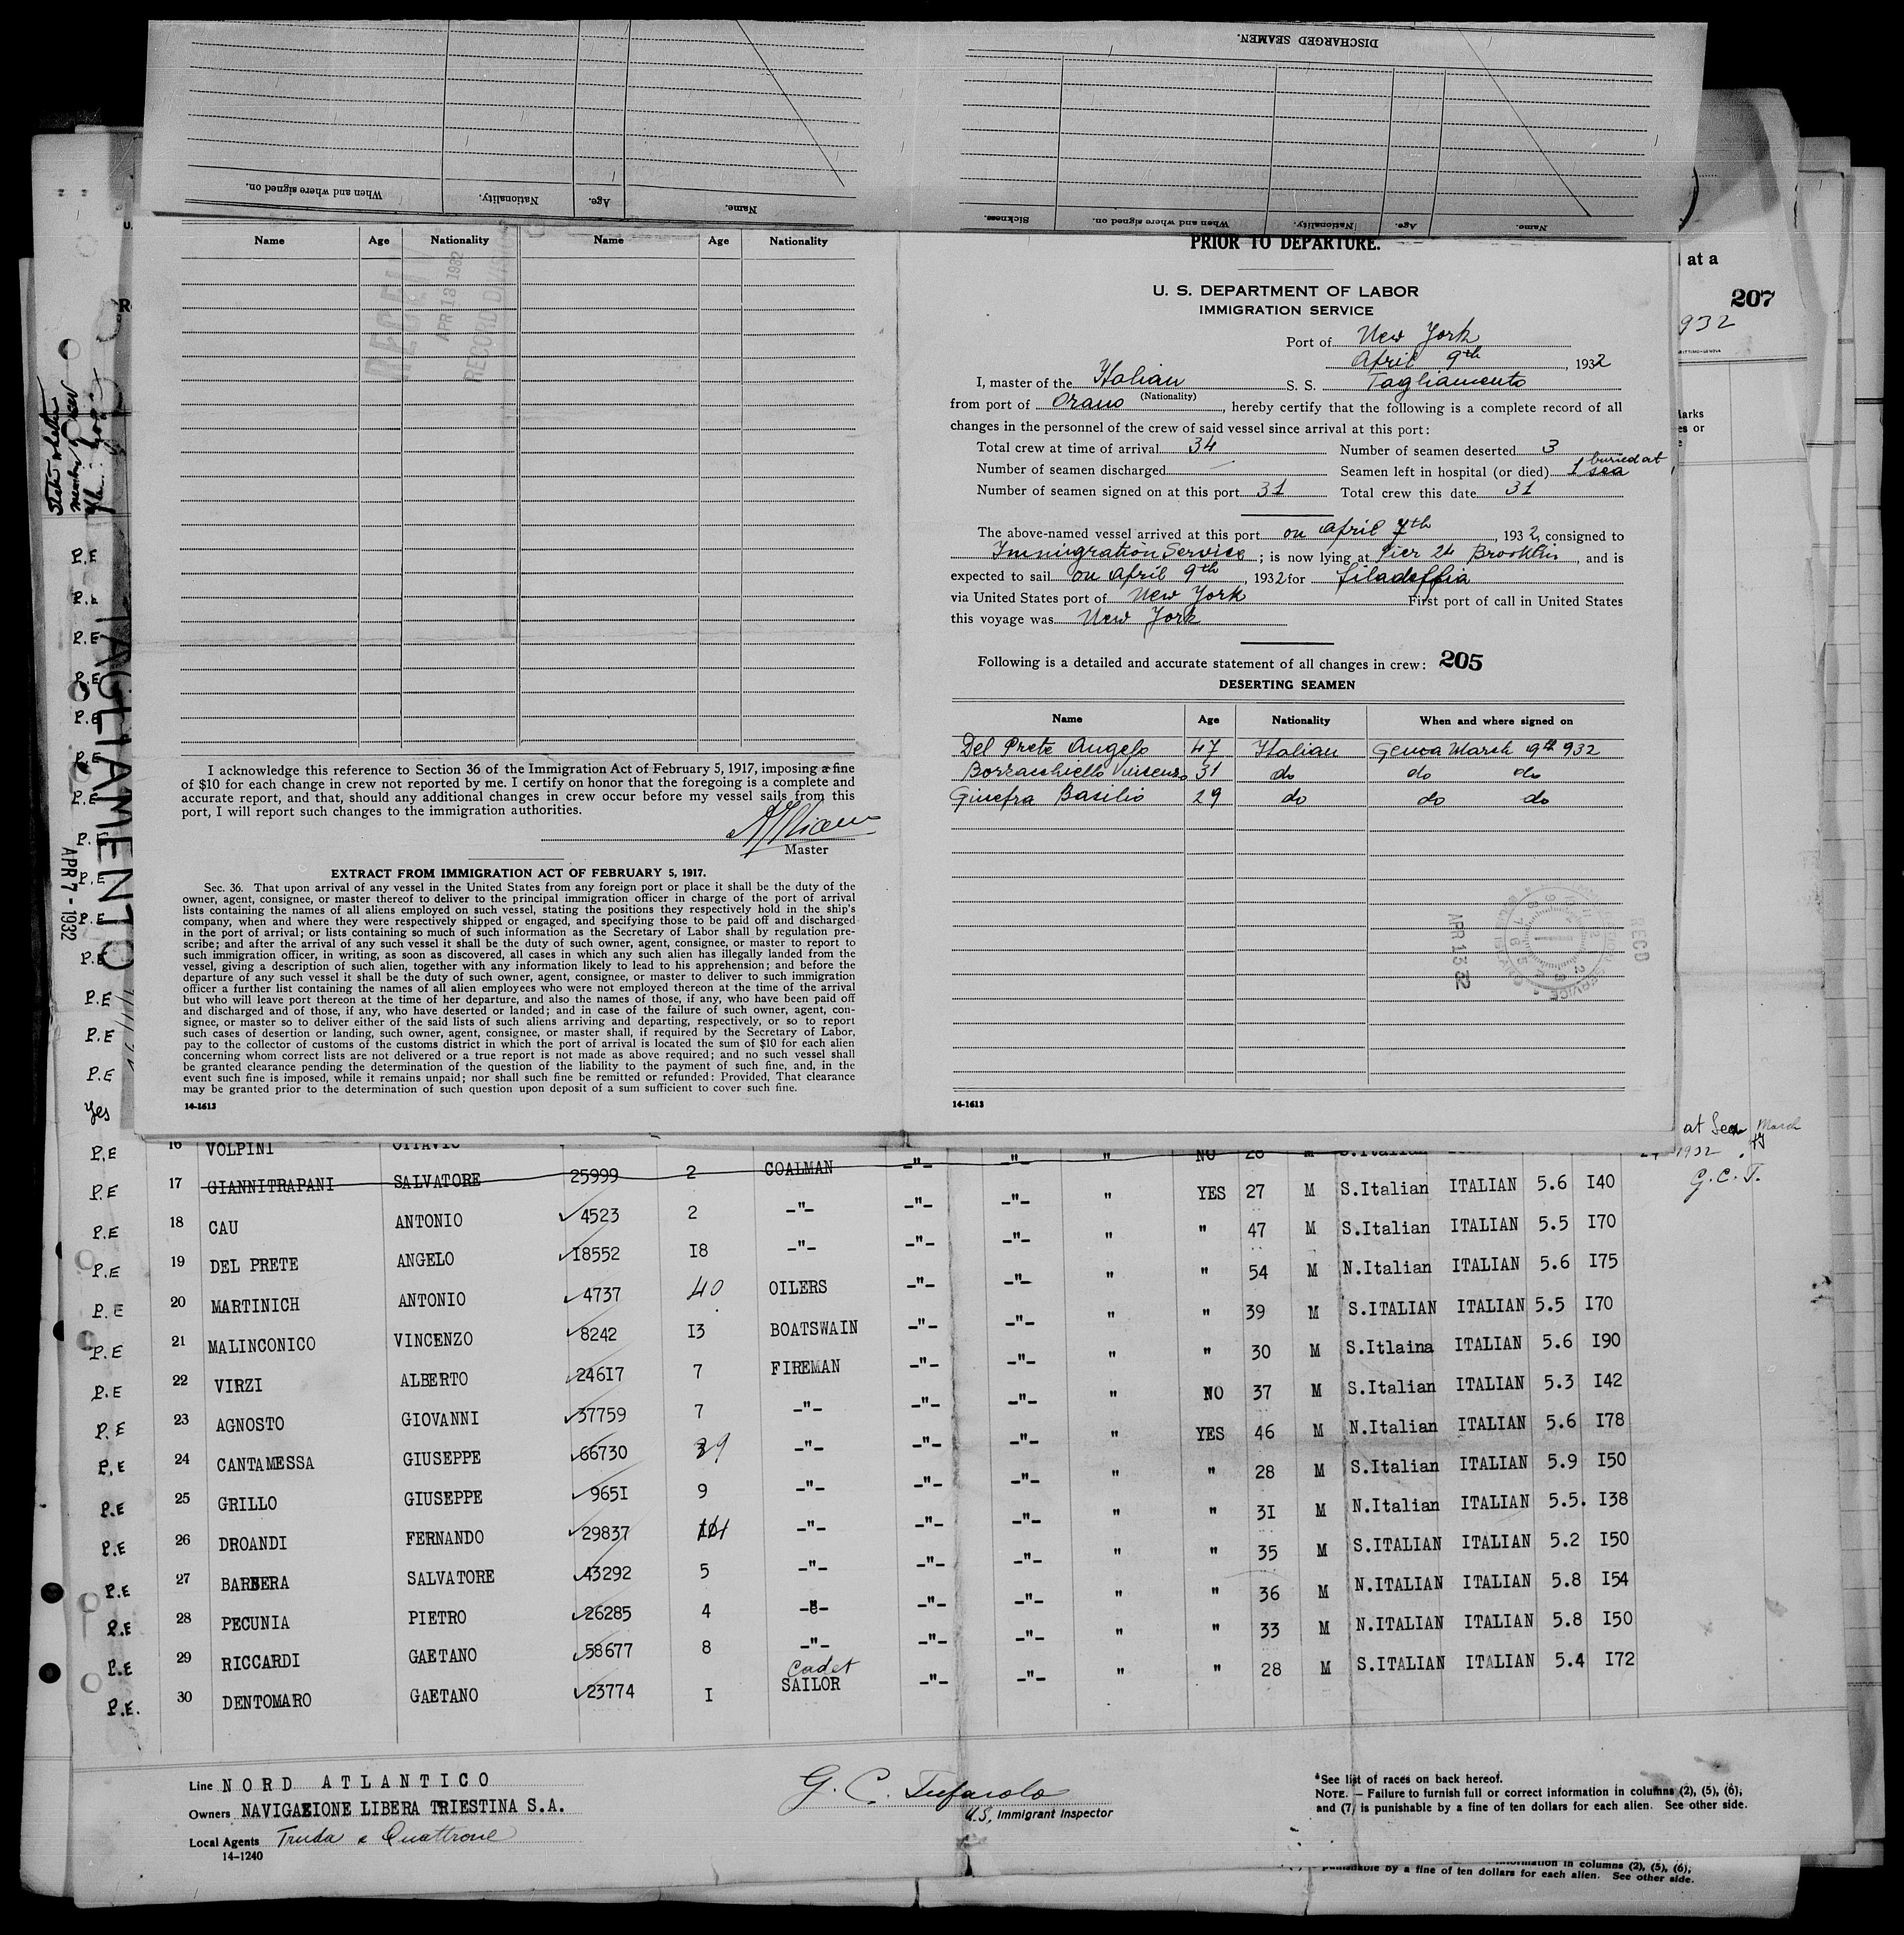 DISCHARGED SEAMEN.
When and where signed on. Nationality. Age. Name.
Sickness. When and where signed on. Nationality. Age. Name.
Name Age Nationality Name Age Nationality
APR 13 1932
RECORD DIVISION
I acknowledge this reference to Section 36 of the Immigration Act of February 5, 1917, imposing a fine
of $10 for each change in crew not reported by me. I certify on honor that the foregoing is a complete and
accurate report, and that, should any additional changes in crew occur before my vessel sails from this
port, I will report such changes to the immigration authorities.
Master
EXTRACT FROM IMMIGRATION ACT OF FEBRUARY 5, 1917.
Sec. 36. That upon arrival of any vessel in the United States from any foreign port or place it shall be the duty of the
owner, agent, consignee, or master thereof to deliver to the principal immigration officer in charge of the port of arrival
lists containing the names of all aliens employed on such vessel, stating the positions they respectively hold in the ship's
company, when and where they were respectively shipped or engaged, and specifying those to be paid off and discharged
in the port of arrival; or lists containing so much of such information as the Secretary of Labor shall by regulation pre-
scribe; and after the arrival of any such vessel it shall be the duty of such owner, agent, consignee, or master to report to
such immigration officer, in writing, as soon as discovered, all cases in which any such alien has illegally landed from the
vessel, giving a description of such alien, together with any information likely to lead to his apprehension; and before the
departure of any such vessel it shall be the duty of such owner, agent, consignee, or master to deliver to such immigration
officer a further list containing the names of all alien employees who were not employed thereon at the time of the arrival
but who will leave port thereon at the time of her departure, and also the names of those, if any, who have been paid off
and discharged and of those, if any, who have deserted or landed; and in case of the failure of such owner, agent, con-
signee, or master so to deliver either of the said lists of such aliens arriving and departing, respectively, or so to report
such cases of desertion or landing, such owner, agent, consignee, or master shall, if required by the Secretary of Labor,
pay to the collector of customs of the customs district in which the port of arrival is located the sum of $10 for each alien
concerning whom correct lists are not delivered or a true report is not made as above required; and no such vessel shall
be granted clearance pending the determination of the question of the liability to the payment of such fine, and, in the
event such fine is imposed, while it remains unpaid; nor shall such fine be remitted or refunded: Provided, That clearance
may be granted prior to the determination of such question upon deposit of a sum sufficient to cover such fine.
14-1613
PRIOR TO DEPARTURE.
U. S. DEPARTMENT OF LABOR
IMMIGRATION SERVICE
Port of New York
April 9th, 1932
I, master of the Italian S. S. Tagliamento
(Nationality)
from port of Orano, hereby certify that the following is a complete record of all
changes in the personnel of the crew of said vessel since arrival at this port:
Total crew at time of arrival 34 Number of seamen deserted 3
Number of seamen discharged — Seamen left in hospital (or died) 1 buried at sea
Number of seamen signed on at this port 31 Total crew this date 31
The above-named vessel arrived at this port on April 7th, 1932, consigned to
Immigration Service; is now lying at Pier 24 Brooklin, and is
expected to sail on April 9th, 1932 for filadelfia
via United States port of New York First port of call in United States
this voyage was New York
Following is a detailed and accurate statement of all changes in crew: 205
DESERTING SEAMEN
Name Age Nationality When and where signed on
Del Prete Angelo 47 Italian Genoa March 9th 932
Borracchiello Vincenzo 31 do do do
Ginefra Basilio 29 do do do
APR 13 32
RECD
14-1613
at a
207
932
TAGLIAMENTO
APR 7 - 1932
P.E
P.E
P.E
P.E
P.E
P.E
P.E
P.E
P.E
P.E
P.E
P.E
P.E
P.E
Yes
at Sea March
1932
G. C. T.
P.E 16 VOLPINI OTTAVIO
P.E 17 GIANNITRAPANI SALVATORE 25999 2 COALMAN -"- -"- " NO 28 M S.Italian
P.E 18 CAU ANTONIO 4523 2 -"- -"- -"- " YES 27 M S.Italian ITALIAN 5.6 I40
P.E 19 DEL PRETE ANGELO I8552 I8 -"- -"- -"- " " 47 M S.Italian ITALIAN 5.5 I70
P.E 20 MARTINICH ANTONIO 4737 40 OILERS -"- -"- " " 54 M N.Italian ITALIAN 5.6 I75
P.E 21 MALINCONICO VINCENZO 8242 I3 BOATSWAIN -"- -"- " " 39 M S.ITALIAN ITALIAN 5.5 I70
P.E 22 VIRZI ALBERTO 246I7 7 FIREMAN -"- -"- " " 30 M S.Itlaina ITALIAN 5.6 I90
P.E 23 AGNOSTO GIOVANNI 37759 7 -"- -"- -"- " NO 37 M S.Italian ITALIAN 5.3 I42
P.E 24 CANTAMESSA GIUSEPPE 66730 39 -"- -"- -"- " YES 46 M N.Italian ITALIAN 5.6 I78
P.E 25 GRILLO GIUSEPPE 965I 9 -"- -"- -"- " " 28 M S.Italian ITALIAN 5.9 I50
P.E 26 DROANDI FERNANDO 29837 -"- -"- -"- " " 3I M N.Italian ITALIAN 5.5. I38
P.E 27 BARBERA SALVATORE 43292 5 -"- -"- -"- " " 35 M S.ITALIAN ITALIAN 5.2 I50
P.E 28 PECUNIA PIETRO 26285 4 -"- -"- -"- " " 36 M N.ITALIAN ITALIAN 5.8 I54
P.E 29 RICCARDI GAETANO 58677 8 -"- -"- -"- " " 33 M N.ITALIAN ITALIAN 5.8 I50
P.E. 30 DENTOMARO GAETANO 23774 I Cadet SAILOR -"- -"- " " 28 M S.ITALIAN ITALIAN 5.4 I72
Line NORD ATLANTICO
Owners NAVIGAZIONE LIBERA TRIESTINA S.A.
Local Agents Truda e Quattrone
14-1240
G. C. Tufarolo
U.S. Immigrant Inspector
*See list of races on back hereof.
NOTE. — Failure to furnish full or correct information in columns (2), (5), (6),
and (7) is punishable by a fine of ten dollars for each alien. See other side.
information in columns (2), (5), (6),
punishable by a fine of ten dollars for each alien. See other side.